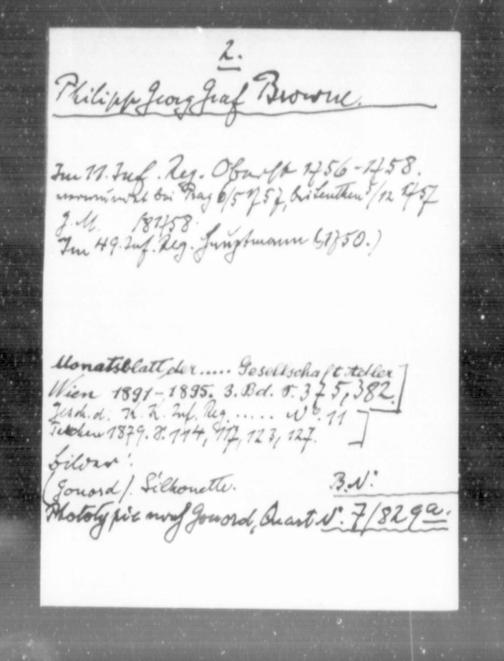 2.
Philipp Georg Graf Browne.
Im 11. Inf. Reg. Oberst 1756-1758.
verwundet bei Prag 6/5 1757, bei Leuthen 5/12 1757
G. M. 1758.
Im 49. Inf. Reg. Hauptmann (1750.)
Monatsblatt der ..... Gesellschaft Adler
Wien 1891-1895. 3. Bd. S. 375, 382.
Gesch. d. K. K. Inf. Reg. ..... No. 11
Teschen 1879. S. 114, 117, 123, 127.
Bilder:
(Gonord). Silhouette.
B. N:
Phototypie nach Gonord, Quart N. 7/829a.